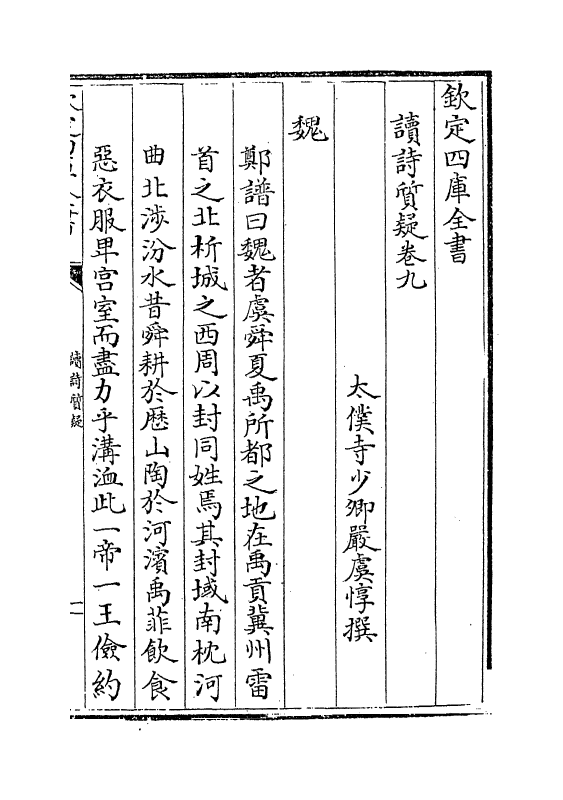 欽定四庫全書
讀詩質疑卷九
太僕寺少卿嚴虞惇撰
魏
鄭譜曰魏者虞舜夏禹所都之地在禹貢冀州雷
首之北析城之西周以封同姓焉其封域南枕河
曲北涉汾水昔舜耕於歴山陶於河濱禹菲飲食
惡衣服卑宫室而盡力乎溝洫此一帝一王儉約
讀詩質疑